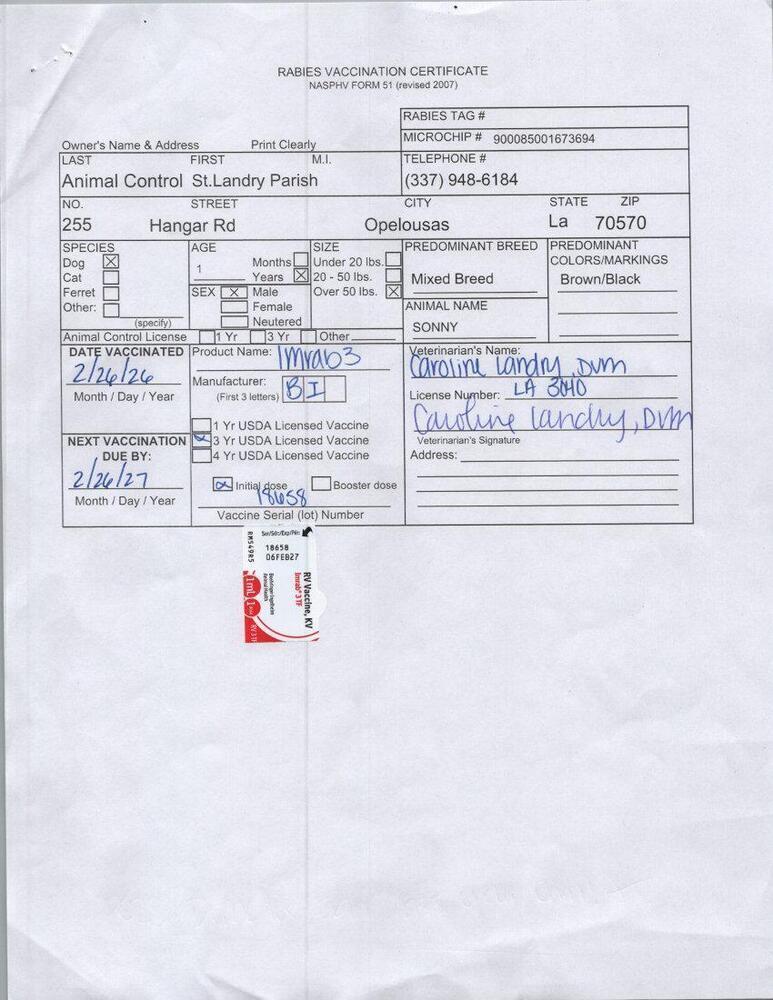 RABIES VACCINATION CERTIFICATE
NASPHV FORM 51 (revised 2007)
RABIES TAG #
MICROCHIP # 900085001673694
Owner's Name & Address Print Clearly
LAST FIRST M.I. TELEPHONE #
Animal Control St.Landry Parish (337) 948-6184
NO. STREET CITY STATE ZIP
255 Hangar Rd Opelousas La 70570
SPECIES AGE SIZE PREDOMINANT BREED PREDOMINANT
COLORS/MARKINGS
Dog X Months Under 20 lbs.
Cat 1 Years X 20 - 50 lbs. Mixed Breed Brown/Black
Ferret SEX X Male Over 50 lbs. X
Other: Female ANIMAL NAME
(specify) Neutered SONNY
Animal Control License 1 Yr 3 Yr Other
DATE VACCINATED Product Name: Imrab3 Veterinarian's Name:
2/26/26 Caroline Landry, DVM
Manufacturer: BI
Month / Day / Year (First 3 letters) License Number: LA 3140
1 Yr USDA Licensed Vaccine Caroline Landry, DVM
NEXT VACCINATION 3 Yr USDA Licensed Vaccine Veterinarian's Signature
DUE BY: 4 Yr USDA Licensed Vaccine Address:
2/26/27
Initial dose Booster dose
Month / Day / Year 18658
Vaccine Serial (lot) Number
Ser/Sér./Exp/Pér:
18658
06FEB27
RM549R5
RV Vaccine, KV
Imrab® 3 TF
Boehringer Ingelheim
Animal Health
1 mL 1
RV 3 TF